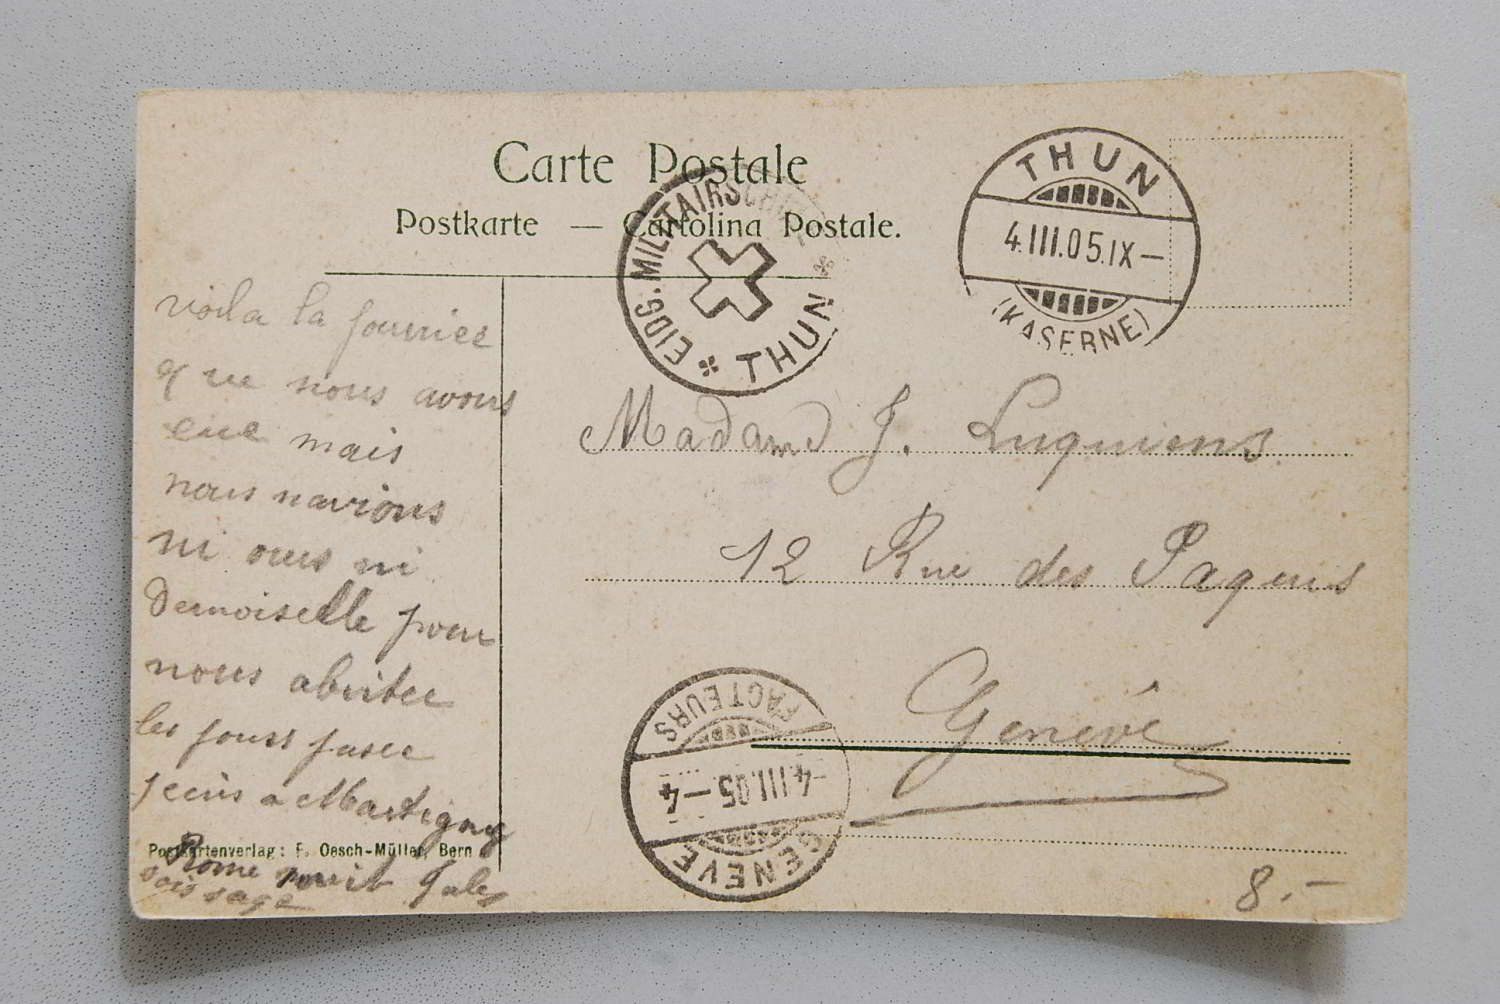 Carte Postale
Postkarte — Cartolina Postale.
EIDG. MILITAIRSCH
THUN
THUN
4.III.05.IX—
(KASERNE)
voila la fournie
que nous avons
eue mais
nous navions
ni ours ni
Demoiselle pour
nous abriter
les jours
a Martigny
Postkartenverlag: F. Oesch-Müller, Bern
Rome Jules
sois sage
Madame J. Luquiens
12 Rue des Paquis
Genève
FACTEURS
4.III.05—4
GENÈVE
8.—